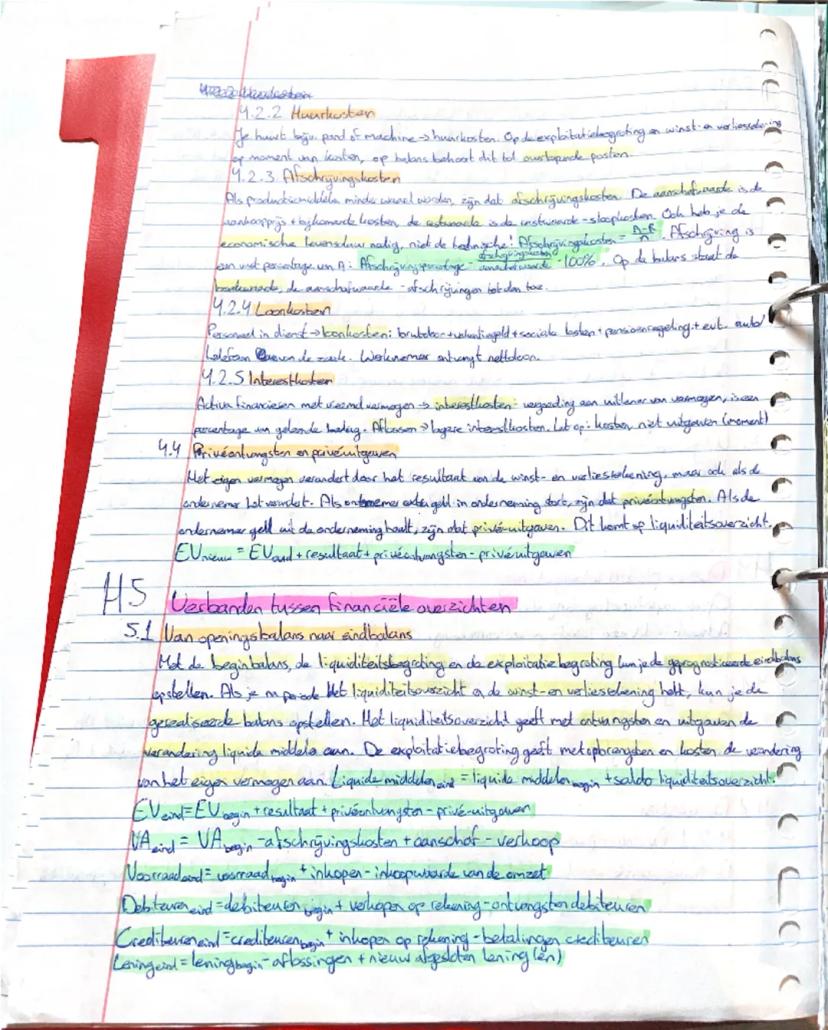 4.2.2 Huurkosten
Je huurt bijv. pand of machine → huurkosten. Op de exploitatiebegroting en winst- en verliesrekening
op moment van kosten, op balans behoort dit tot overlopende posten.
4.2.3 Afschrijvingskosten
Als productiemiddelen minder waard worden, zijn dat afschrijvingskosten. De aanschafwaarde is de
aankoopprijs + bijkomende kosten, de restwaarde is de restwaarde - sloopkosten. Ook heb je de
economische levensduur nodig, niet de technische! Afschrijvingskosten = A-R/n. Afschrijving is
een vast percentage van A: Afschrijvingspercentage = afschrijvingskosten/aanschafwaarde · 100%. Op de balans staat de
boekwaarde, de aanschafwaarde - afschrijvingen tot dan toe.
4.2.4 Loonkosten
Personeel in dienst → loonkosten: brutoloon + vakantiegeld + sociale lasten + pensioenregeling + evt. auto/
telefoon van de zaak. Werknemer ontvangt nettoloon.
4.2.5 Interestkosten
Activa financieren met vreemd vermogen → interestkosten: vergoeding aan uitlener van vermogen, is een
percentage van geleende bedrag. Aflossen → lagere interestkosten. Let op: kosten, niet uitgaven (moment)
4.4 Privéontvangsten en privéuitgaven
Het eigen vermogen verandert door het resultaat van de winst- en verliesrekening, maar ook als de
ondernemer het verandert. Als ondernemer extra geld in onderneming stort, zijn dat privéontvangsten. Als de
ondernemer geld uit de onderneming haalt, zijn dat privé-uitgaven. Dit komt op liquiditeitsoverzicht.
EV nieuw = EV oud + resultaat + privéontvangsten - privéuitgaven
H5 Verbanden tussen financiële overzichten
5.1 Van openingsbalans naar eindbalans
Met de beginbalans, de liquiditeitsbegroting en de exploitatiebegroting kun je de geprognosticeerde eindbalans
opstellen. Als je na periode het liquiditeitsoverzicht en de winst- en verliesrekening hebt, kun je de
gerealiseerde balans opstellen. Het liquiditeitsoverzicht geeft met ontvangsten en uitgaven de
verandering liquide middelen aan. De exploitatiebegroting geeft met opbrengsten en kosten de verandering
van het eigen vermogen aan. Liquide middelen eind = liquide middelen begin + saldo liquiditeitsoverzicht.
EV eind = EV begin + resultaat + privéontvangsten - privé-uitgaven
VA eind = VA begin - afschrijvingskosten + aanschaf - verkoop
Voorraad eind = voorraad begin + inkopen - inkoopwaarde van de omzet
Debiteuren eind = debiteuren begin + verkopen op rekening - ontvangsten debiteuren
Crediteuren eind = crediteuren begin + inkopen op rekening - betalingen crediteuren
Lening eind = lening begin - aflossingen + nieuw afgesloten lening(en)